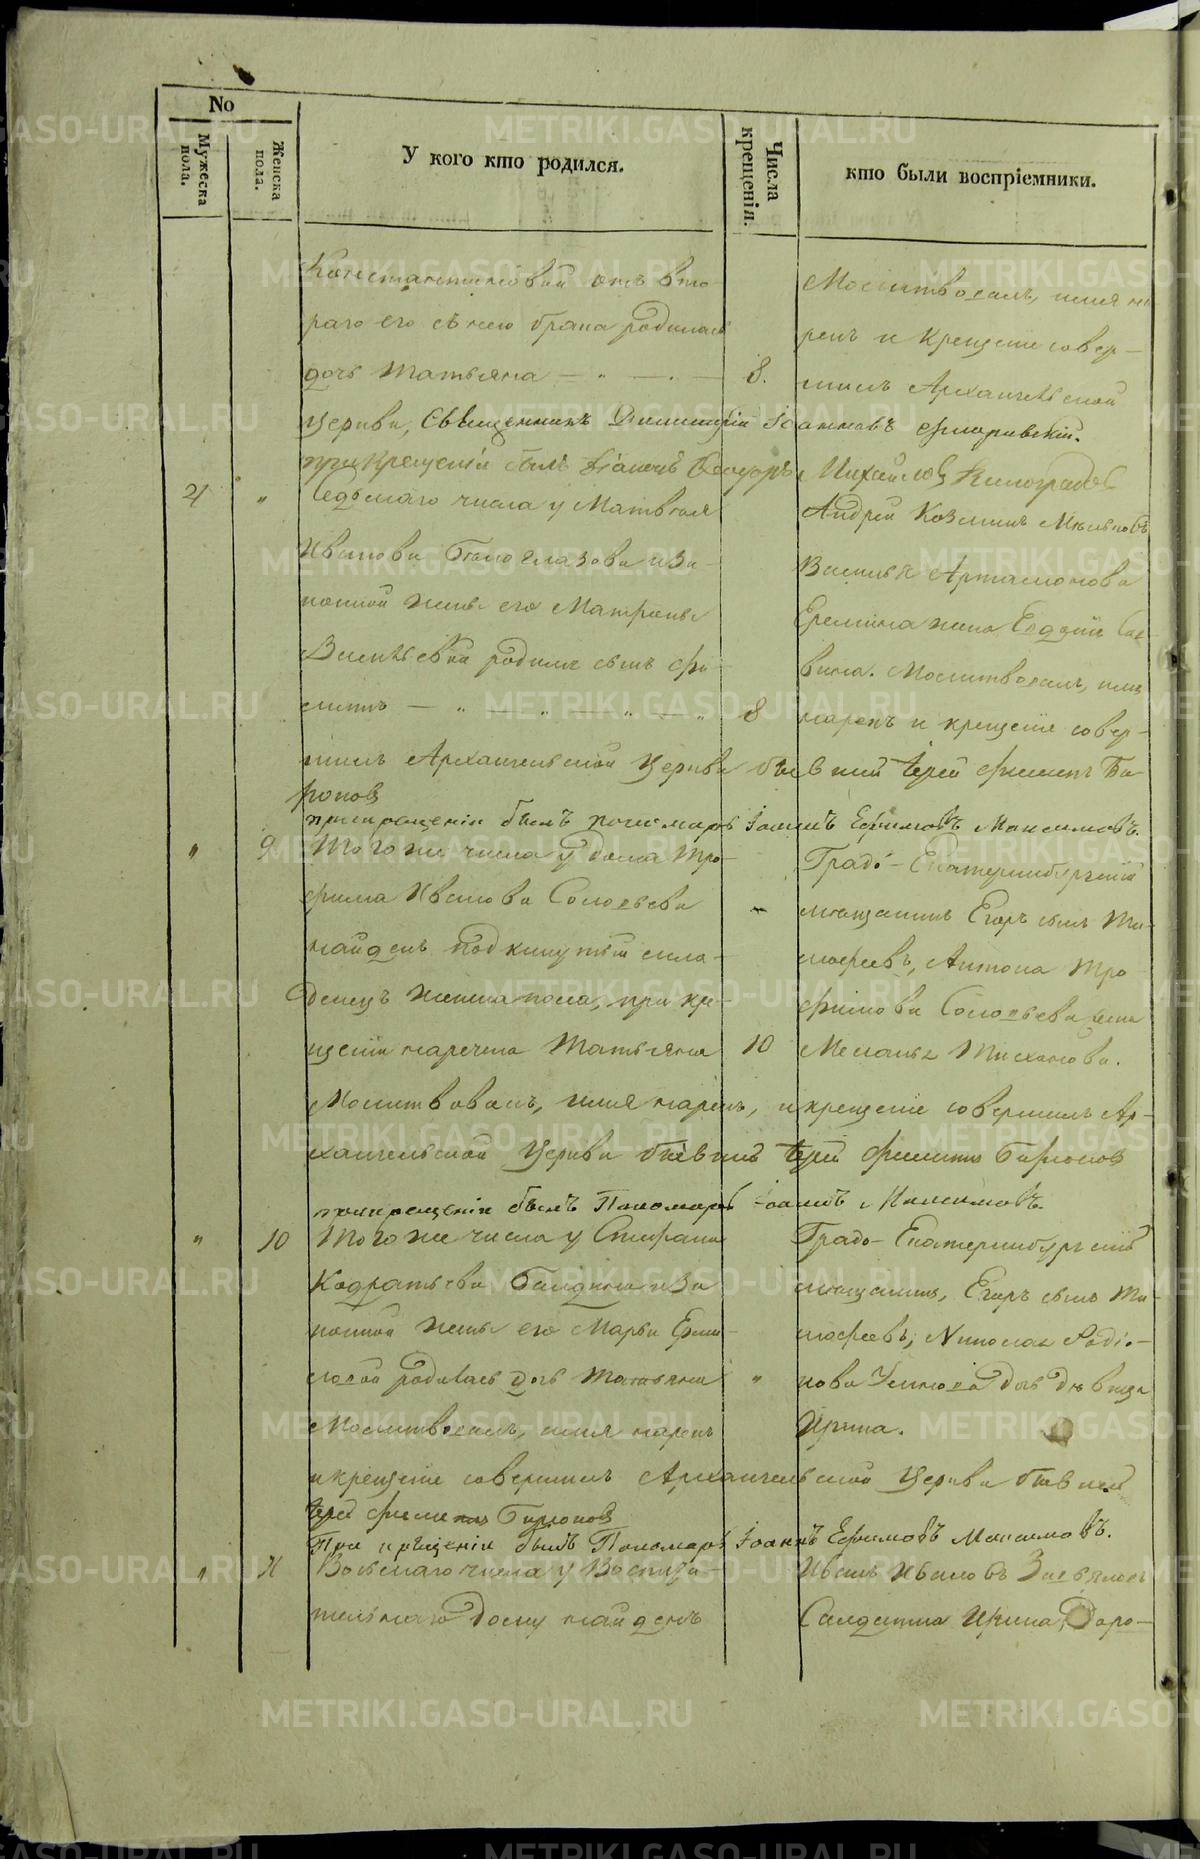 No
Мужеска пола.
Женска пола.
У кого кто родился.
Числа крещенія.
кто были воспріемники.
Константиновой отъ вто-
раго его съ нею брака родилась
дочь Татьяна 8.
Молитвовалъ, имя на-
рекъ и крещение совер-
шилъ Архангельской
церкви, Священникъ Димитрій Іоанновъ
при крещеніи былъ Діаконъ Ѳеодоръ Михайловъ Виноградов
21 " Седьмаго числа у Матвея
Иванова Белоглазова и за-
конной жены его Матроны
Васильевой родился сынъ Фи-
липъ 8
Андрей Козминъ
Василья Артамонова
Еремина жена Евдокия Сав-
вина. Молитвовалъ, имя
нарекъ и крещение совер-
шилъ Архангельской церкви бывший Іерей Филипъ Би-
рюков
при крещеніи былъ пономарь Іоаннъ Ефимовъ Максимовъ.
" 9 Того же числа у дома Тро-
фима Иванова Соловьева
найденъ подкинутый мла-
денецъ женска пола, при кре-
щении наречена Татьяна 10
Градо-Екатеринбургский
мещанинъ Егоръ сынъ Ти-
мофеевъ, Антона Тро-
фимова Соловьева жена
Меланья Тихонова.
Молитвовалъ, имя нарекъ, и крещение совершилъ Ар-
хангельской церкви бывший Іерей Филипъ Бирюков
при крещеніи былъ Пономарь Іоаннъ Максимовъ.
" 10 Того же числа у Стефана
Кодратьева Балдина и за-
конной жены его Марьи Ерми-
ловой родилась дочь Татьяна "
Молитвовалъ, имя нарекъ
Градо-Екатеринбургский
мещанинъ, Егоръ сынъ Ти-
мофеевъ, Николая Родіо-
нова дочь девица
Ирина.
и крещение совершилъ Архангельской церкви бывшей
Іерей Филипъ Бирюков
При крещеніи былъ Пономарь Іоаннъ Ефимовъ Максимовъ.
" 11 Восьмаго числа у Воспита-
тельнаго Дому найденъ
Иванъ Ивановъ Завьялов
Салдатка Ирина Доро-
METRIKI.GASO-URAL.RU